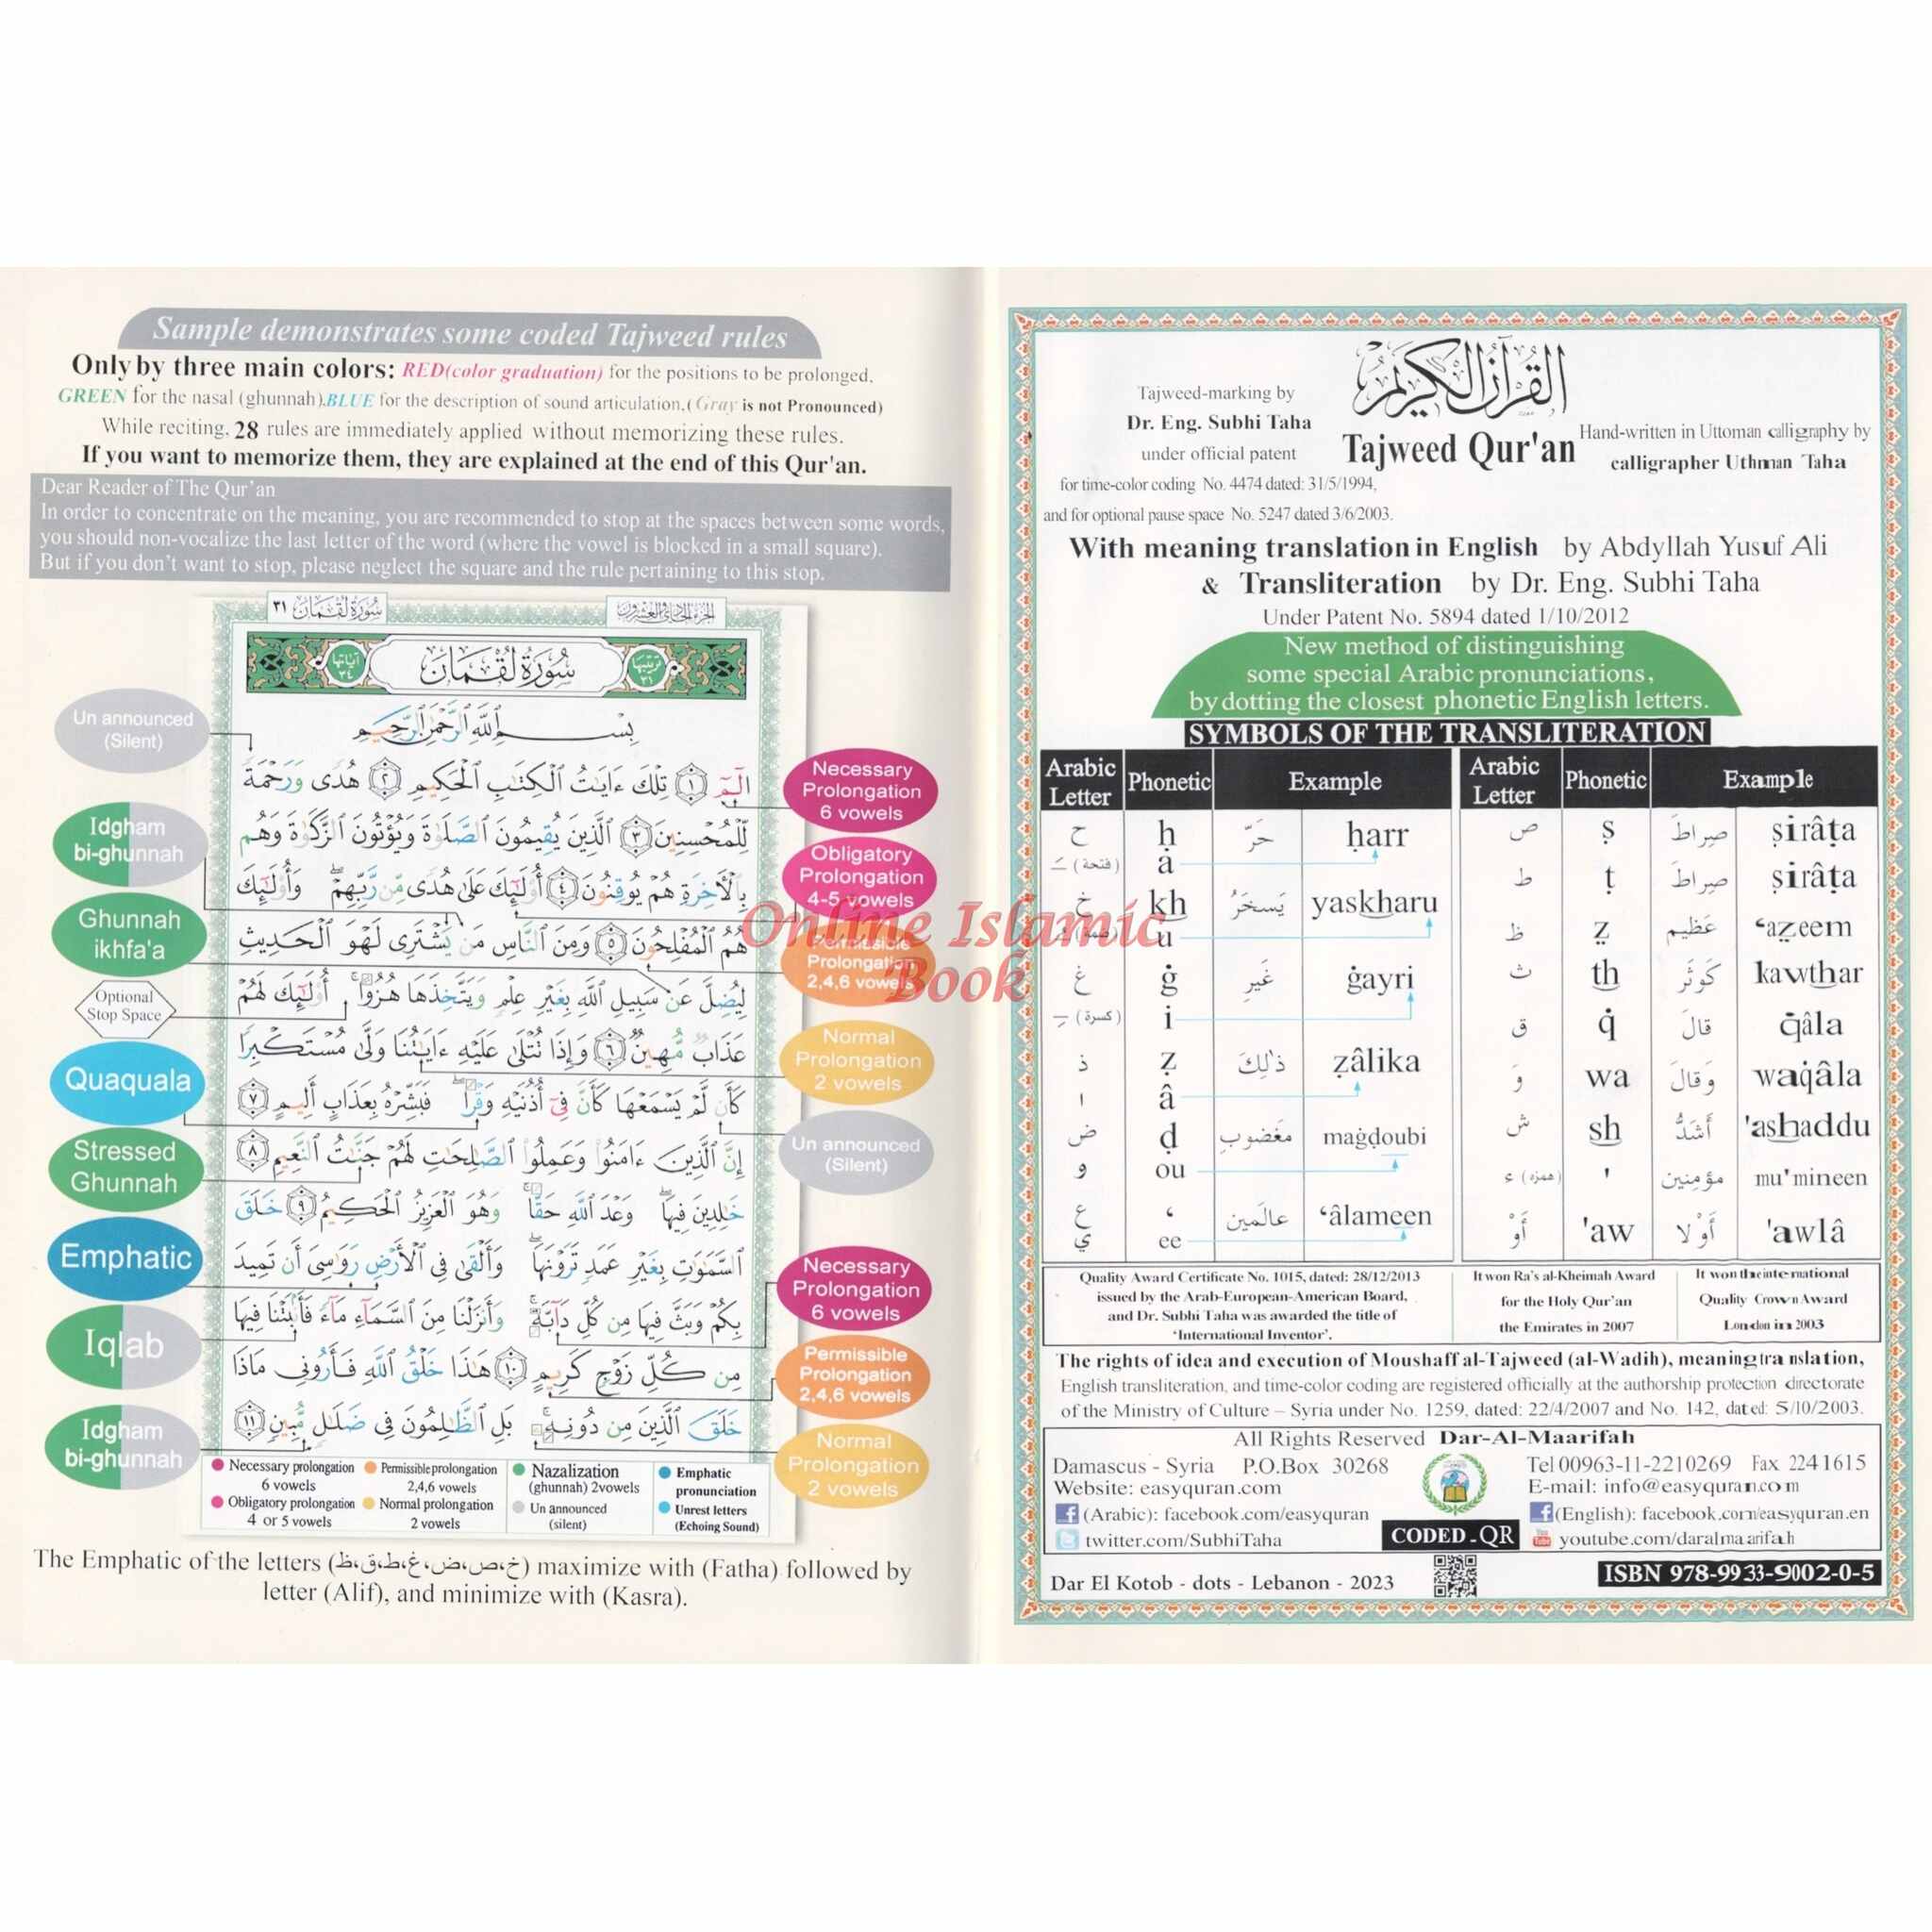 Sample demonstrates some coded Tajweed rules
Only by three main colors: RED(color graduation) for the positions to be prolonged.
GREEN for the nasal (ghunnah).BLUE for the description of sound articulation.( Gray is not Pronounced)
While reciting. 28 rules are immediately applied without memorizing these rules.
If you want to memorize them, they are explained at the end of this Qur'an.
Dear Reader of The Qur'an
In order to concentrate on the meaning, you are recommended to stop at the spaces between some words,
you should non-vocalize the last letter of the word (where the vowel is blocked in a small square).
But if you don't want to stop, please neglect the square and the rule pertaining to this stop.
سُورَةُ لُقْمَان ٣١
الجزء الحادي والعشرون
آياتها ٣٤
سُورَةُ لُقْمَان
ترتيبها ٣١
بِسْمِ ٱللَّهِ ٱلرَّحْمَٰنِ ٱلرَّحِيمِ
الٓمٓ ١ تِلْكَ ءَايَٰتُ ٱلْكِتَٰبِ ٱلْحَكِيمِ ٢ هُدًى وَرَحْمَةً
لِّلْمُحْسِنِينَ ٣ ٱلَّذِينَ يُقِيمُونَ ٱلصَّلَوٰةَ وَيُؤْتُونَ ٱلزَّكَوٰةَ وَهُم
بِٱلْأَخِرَةِ هُمْ يُوقِنُونَ ٤ أُو۟لَٰٓئِكَ عَلَىٰ هُدًى مِّن رَّبِّهِمْ وَأُو۟لَٰٓئِكَ
هُمُ ٱلْمُفْلِحُونَ ٥ وَمِنَ ٱلنَّاسِ مَن يَشْتَرِى لَهْوَ ٱلْحَدِيثِ
لِيُضِلَّ عَن سَبِيلِ ٱللَّهِ بِغَيْرِ عِلْمٍ وَيَتَّخِذَهَا هُزُوًا أُو۟لَٰٓئِكَ لَهُمْ
عَذَابٌ مُّهِينٌ ٦ وَإِذَا تُتْلَىٰ عَلَيْهِ ءَايَٰتُنَا وَلَّىٰ مُسْتَكْبِرًا
كَأَن لَّمْ يَسْمَعْهَا كَأَنَّ فِىٓ أُذُنَيْهِ وَقْرًا فَبَشِّرْهُ بِعَذَابٍ أَلِيمٍ ٧
إِنَّ ٱلَّذِينَ ءَامَنُوا۟ وَعَمِلُوا۟ ٱلصَّٰلِحَٰتِ لَهُمْ جَنَّٰتُ ٱلنَّعِيمِ ٨
خَٰلِدِينَ فِيهَا وَعْدَ ٱللَّهِ حَقًّا وَهُوَ ٱلْعَزِيزُ ٱلْحَكِيمُ ٩ خَلَقَ
ٱلسَّمَٰوَٰتِ بِغَيْرِ عَمَدٍ تَرَوْنَهَا وَأَلْقَىٰ فِى ٱلْأَرْضِ رَوَٰسِىَ أَن تَمِيدَ
بِكُمْ وَبَثَّ فِيهَا مِن كُلِّ دَآبَّةٍ وَأَنزَلْنَا مِنَ ٱلسَّمَآءِ مَآءً فَأَنۢبَتْنَا فِيهَا
مِن كُلِّ زَوْجٍ كَرِيمٍ ١٠ هَٰذَا خَلْقُ ٱللَّهِ فَأَرُونِى مَاذَا
خَلَقَ ٱلَّذِينَ مِن دُونِهِ بَلِ ٱلظَّٰلِمُونَ فِى ضَلَٰلٍ مُّبِينٍ ١١
Un announced
(Silent)
Idgham
bi-ghunnah
Ghunnah
ikhfa'a
Optional
Stop Space
Quaquala
Stressed
Ghunnah
Emphatic
Iqlab
Idgham
bi-ghunnah
Necessary
Prolongation
6 vowels
Obligatory
Prolongation
4-5 vowels
Permissible
Prolongation
2,4,6 vowels
Normal
Prolongation
2 vowels
Un announced
(Silent)
Necessary
Prolongation
6 vowels
Permissible
Prolongation
2,4,6 vowels
Normal
Prolongation
2 vowels
Necessary prolongation
6 vowels
Permissible prolongation
2,4,6 vowels
Nazalization
(ghunnah) 2vowels
Emphatic
pronunciation
Obligatory prolongation
4 or 5 vowels
Normal prolongation
2 vowels
Un announced
(silent)
Unrest letters
(Echoing Sound)
The Emphatic of the letters (خ،ص،ض،غ،ط،ق،ظ) maximize with (Fatha) followed by
letter (Alif), and minimize with (Kasra).
Online Islamic
Book
القرآن الكريم
Tajweed-marking by
Dr. Eng. Subhi Taha
under official patent
for time-color coding No. 4474 dated: 31/5/1994,
and for optional pause space No. 5247 dated 3/6/2003.
Tajweed Qur'an
Hand-written in Uttoman calligraphy by
calligrapher Uthman Taha
With meaning translation in English by Abdyllah Yusuf Ali
& Transliteration by Dr. Eng. Subhi Taha
Under Patent No. 5894 dated 1/10/2012
New method of distinguishing
some special Arabic pronunciations,
by dotting the closest phonetic English letters.
SYMBOLS OF THE TRANSLITERATION
Arabic Letter Phonetic Example Arabic Letter Phonetic Example
ح ḥ حَرّ ḥarr
(فتحة) a
خ kh يَسخَرُ yaskharu
u
غ ġ غَيرِ ġayri
(كسرة) i
ذ ẓ ذٰلِكَ ẓâlika
ا â
ض ḍ مغضوب maġḍoubi
و ou
ع ‘ عالَمين ‘âlameen
ي ee
ص ṣ صِراطَ ṣirâṭa
ط ṭ صِراطَ ṣirâṭa
ظ ẓ عَظيم ‘aẓeem
ث th كَوثَر kawthar
ق q̇ قالَ q̇âla
وَ wa وَقالَ waq̇âla
ش sh أَشَدُّ 'ashaddu
ء (همزه) ' مؤمِنين mu'mineen
أَوْ 'aw أَوْلا 'awlâ
Quality Award Certificate No. 1015, dated: 28/12/2013
issued by the Arab-European-American Board,
and Dr. Subhi Taha was awarded the title of
‘International Inventor’.
It won Ra's al-Kheimah Award
for the Holy Qur'an
the Emirates in 2007
It won the international
Quality Crown Award
London in 2003
The rights of idea and execution of Moushaff al-Tajweed (al-Wadih), meaning translation,
English transliteration, and time-color coding are registered officially at the authorship protection directorate
of the Ministry of Culture – Syria under No. 1259, dated: 22/4/2007 and No. 142, dated: 5/10/2003.
All Rights Reserved Dar-Al-Maarifah
Damascus - Syria P.O.Box 30268
Website: easyquran.com
(Arabic): facebook.com/easyquran
twitter.com/SubhiTaha
Tel 00963-11-2210269 Fax 2241615
E-mail: info@easyquran.com
(English): facebook.com/easyquran.en
youtube.com/daralmaarifah
CODED-QR
Dar El Kotob - dots - Lebanon - 2023
ISBN 978-9933-9002-0-5